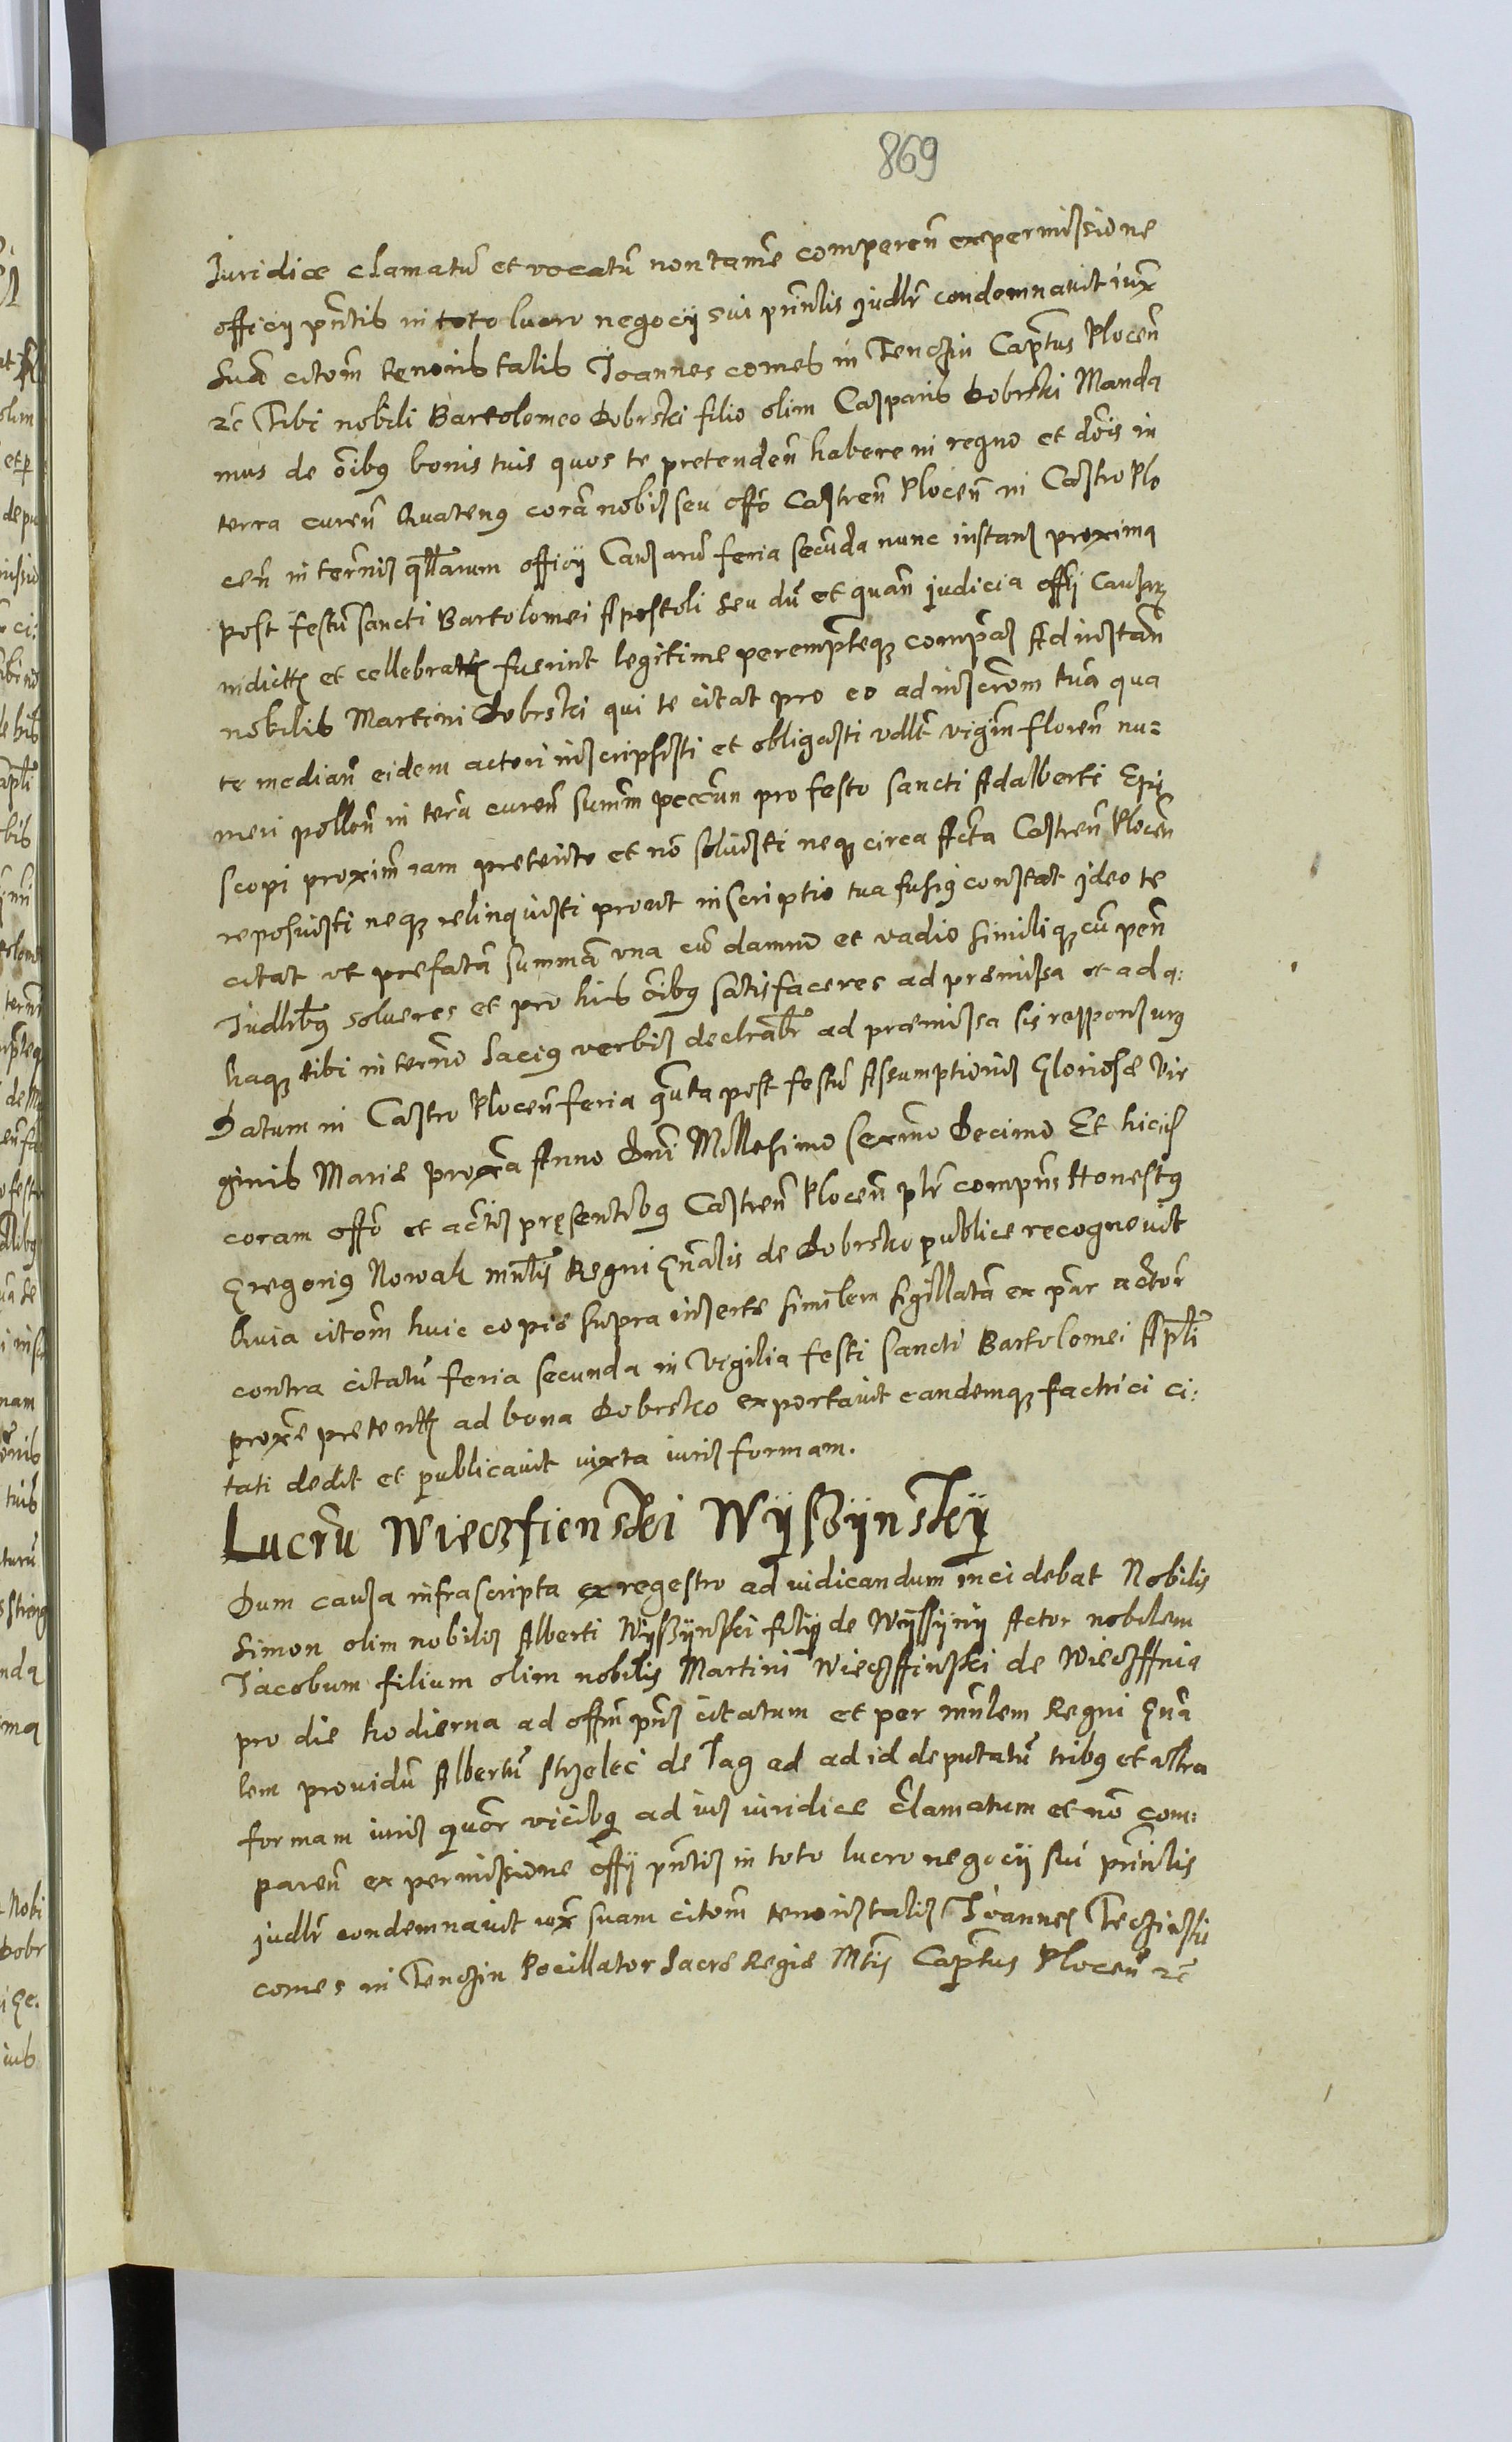 869
Iuridice clamatũ et vocatũ non tamẽ comperen̄ ex permissione
officy pñtis in toto lucro negocy sui prinlis judlr condemnavit iux̃
suã citom̃ tenoris talis Joannes comes in Tenczin Captus Plocen̄
rc̃ Tibi nobili Bartolomeo Dobrski filio olim Casparis Dobrski Manda
mus de oĩbus bonis tuis quos te pretenden̄ habere in regno et dõis in
terra curen̄ Quatenus corã nobis seu offõ Castren̄ Plocen̄ in Castro Plo
cen̄ in terñis qllarum officy Causarũ feria secũda nunc instans proxima
post festũ sancti Bartolomei Apostoli seu dũ et quan̄ judicia offy Causar
indictȩ et cellebratȩ fuerint legitime peremptẽqȝ compẽas Ad instan̄
nobilis Martini Dobrski qui te citat pro eo ad inscrom̃ tuã qua
te median̄ eidem actori inscripsisti et obligasti vdlt vigin̄ floren̄ nu=
meri pollon̄ in terã curen̄ summ̃ peccun̄ pro festo sancti Adalberti Epi
scopi proxim̃ iam pretento et nõ solvisti neqȝ circa Acta Castren̄ Plocen̄
reposuisti neqȝ relinquisti prout inscriptio tua fusius constat jdeo te
citat vt prefatã summã vna cũ damno et vadio similiqȝ cũ pen̄
Judlribus solueres et pro his oĩbus satisfaceres ad præmissa et ad q:
haqȝ tibi in terño lacius verbis declrabr̃ ad præmissa sis responsurus
Datum in Castro Plocen̄ feria quĩta post festũ Assumptionis Gloriosæ Vir
ginis Mariæ proxã Anno Dñi Millesimo sexmo decimo Et hic
coram offõ et actis pręsentibus Castren̄ Plocen̄ plr compñs Honestus
Gregorius Nowak mnlis Regni Gñalis de Dobrsko publice recognovit
Quia citom̃ huic copiæ supra insertæ similem sigillatã ex par actor
contra citatũ feria secunda in Vigilia festi sancti Bartolomei Apli
proxe preteritȩ ad bona Dobrsko exportavit eandemqȝ factrici ci:
tati dedit et publicavit iuxta iuris formam.
Lucrũ Wieczfienski Wÿszÿnskÿ
Dum causa infrascripta ex regestro ad iudicandum incidebat Nobilis
Simon olim nobilis Alberti Wÿszÿnski filÿ de Wÿssÿnÿ Actor nobilem
Jacobum filium olim nobilis Martini Wieczffinski de Wieczffnia
pro die hodierna ad offm̃ pñs citatum et per mñlem Regni Gñã
lem providũ Albertũ strzelec de Jag ad ad id deputatũ tribus et vltra
formam iuris quõr vicibus ad ius iuridice clamatum et nõ com:
paren̄ ex permissione offy pñtis in toto lucro negocÿ sui prinlis
judlr condemnavit iux̃ suam citom̃ tenoris talis Joannes Teczinski
comes in Tenczin Pocillator Sacræ Regiæ Mtis Captus Plocen̄ rc̃